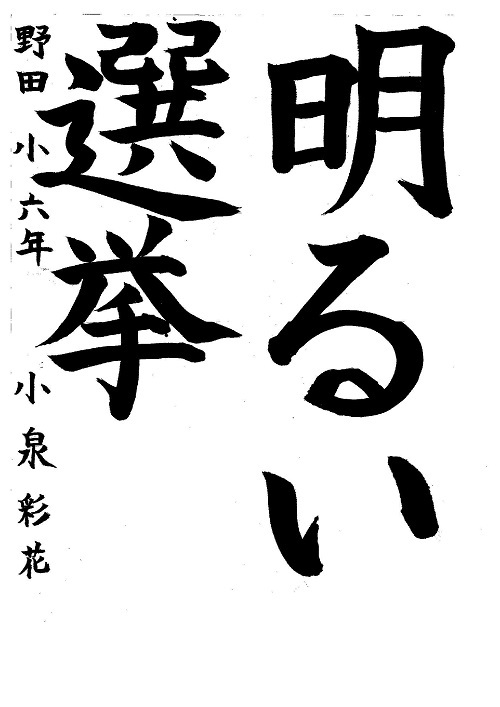 明るい
選挙
野田小六年 小泉彩花